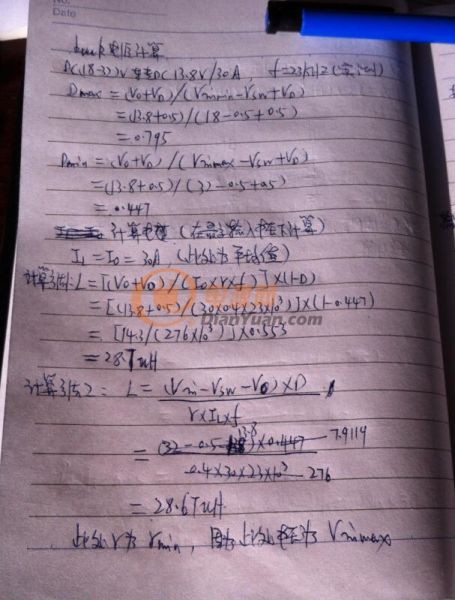 No.
Date
buck电感计算
DC(18-32)V 转DC 13.8V/30A, f=23KHZ(实测)
Dmax =(Vo+VD)/(Vinmin-Vsw+VD)
=(13.8+0.5)/(18-0.5+0.5)
=0.795
Dmin =(Vo+VD)/(Vinmax-Vsw+VD)
=(13.8+0.5)/(32-0.5+0.5)
=0.447
计算电感(在最高输入电压下计算)
IL=Io=30A (此处为平均值)
计算方法1: L=[(Vo+VD)/(Io×r×f)]×(1-D)
=[(13.8+0.5)/(30×0.4×23×10³)]×(1-0.447)
=[14.3/(276×10³)]×0.553
=28.7uH
计算方法2: L=(Vin-Vsw-Vo)×D
r×IL×f
=(32-0.5-13.8)×0.447 7.9119
0.4×30×23×10³ 276
=28.67uH
此处r为rmin, 因为此处电压为Vinmax
DianYuan.com